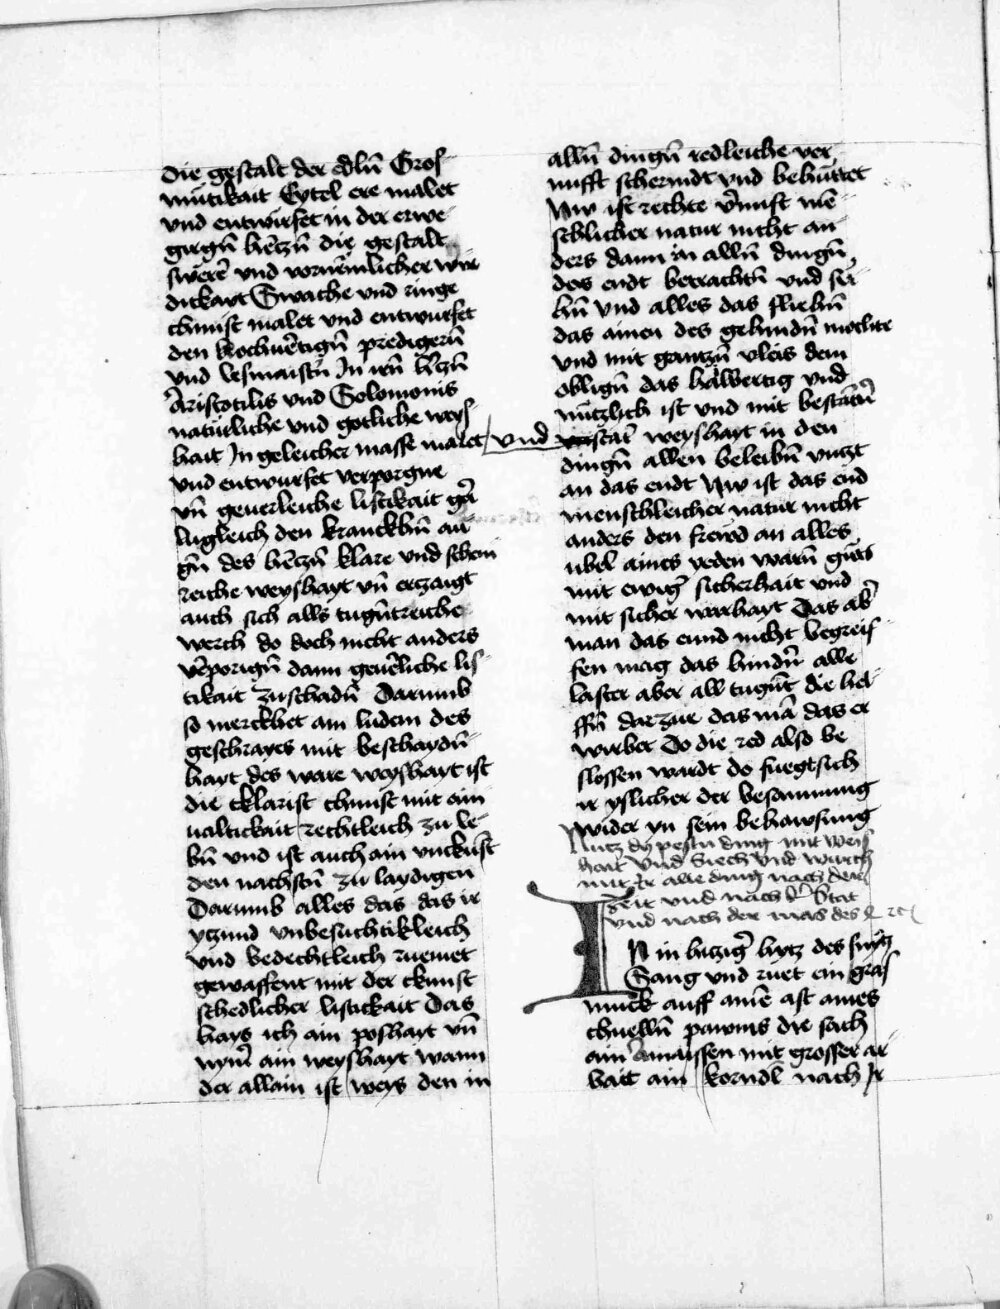 die gestalt der edlñ Gros
mütikait Eytel ere malet
und entwirfet in der erwe
girgñ hẽtzñ die gestalt
swerẽ vnd vornẽmlicher wir
dickayt Swache vnd ringe
chunst malet vnd entwurfet
den hochvẽtigñ predigerñ
vnd lesmaistñ In irñ hẽtzñ
Aristotilis vnd Solomonis
natürliche vnd gotliche weys
hait In geleicher masse malet
vnd entwurfet verporgne
vñ geuerleiche listikait gãr
lugleich den kranckhñ au
gñ des hẽtzñ klare vnd schein
reiche weyshayt vñ ertzaigt
auch sich alls tugñtreiche
werch do doch nicht anders
vẽporigñ dann geuẽliche lis
tikait zuschadñ Darumb
so merckhet am ludem des
geschrayes mit beschaydñ
hayt des ware weyshayt ist
die cklarist chunst mit ain
ualtickait rechtleich zu le
bñ vnd ist auch ain vnckũst
den nachstñ zu laydigen
Darumb alles das das ir
yczund vnbesichtikleich
vnd bedechtleich ruemet
gewaffent mit der ckunst
schedlicher listickait Das
hays ich ain poshayt vñ
nym̃ ain weyshayt wann
der allain ist weys den in
allñ dingñ redleiche ver
nufft schermdt vnd behüttet
Nw ist rechte v̄nunst mẽ
schlicher natur nicht an
ders dann in allñ dingñ
des endt betrachtñ vnd se
hñ vnd alles das fliehñ
das ainen des gehindñ mochte
vnd mit gantzñ vleis dem
obligñ das halwertig vnd
nützlich ist vnd mit bestãtñ
vnd stãt weyshayt in den
dingñ allen beleibñ vnczt
an das endt Nw ist das end
menschleicher natur nicht
anders den frewd an alles
ubel aines yeden warñ guts
mit ewig̃ sicherhait vnd
mit sicher warhayt Das ab̃
man das ennd nicht begreif
fen mag das hindñ alle
laster aber all tugñt die hel
ffñ darzue das mã das er
wirbet Do die red also be
slossen wardt do fuegt sich
ir yslicher der besamnung
wider yn sein behawsung
Nutz dy pesñ ding mit weis
hait vnd Siech vnd wurch
mit ir alle ding nach der
zeit vnd nach d̃ Stat
vnd nach der mas des &c
IN in hitzig̃ hytz des sũgtz
Sang vnd ruet ein gras
muck auff ainẽ ast aines
chuellñ pawms die sach
ain amaissen mit grosser ar
bait ain korndl nach ir